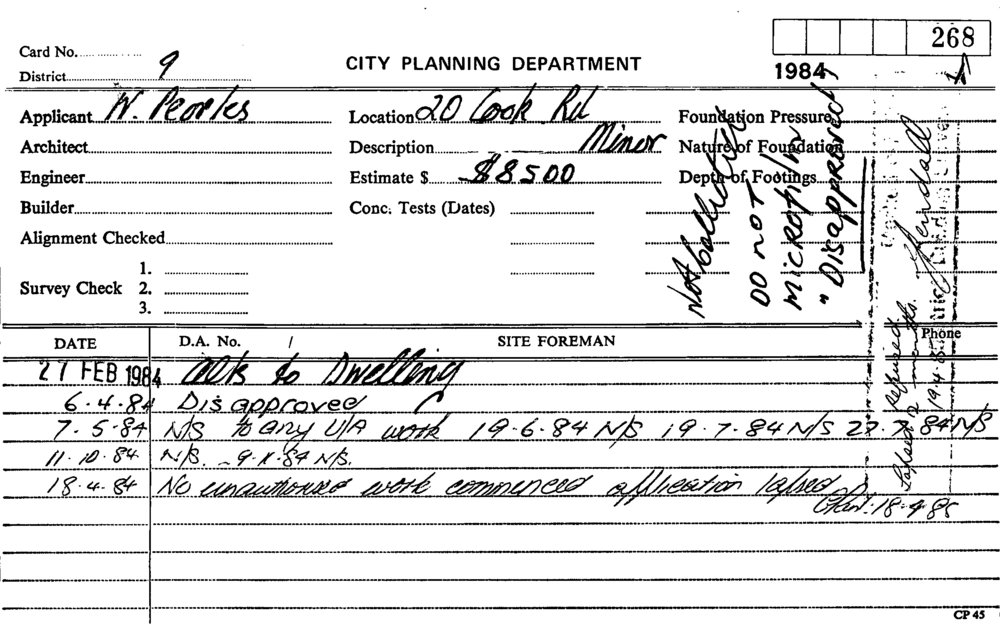 268
1984
Card No.
District 9
CITY PLANNING DEPARTMENT
Applicant W. Peoples
Location 20 Cook Rd
Foundation Pressure
Architect
Description Minor
Nature of Foundation
Engineer
Estimate $ $8500
Depth of Footings
Builder
Conc. Tests (Dates)
Alignment Checked
Survey Check 1.
2.
3.
Not Collected
DO NOT
microfilm
"Disapproved"
DATE D.A. No. / SITE FOREMAN Phone
27 FEB 1984 Alts to Dwelling
6.4.84 Disapproved
7.5.84 N/S to any U/A work 19.6.84 N/S 19.7.84 N/S 84 N/S
11.10.84 N/S. 9.11.84 N/S.
18.4.84 No unauthorised work commenced application lapsed
18.4.85
Lapsed 12 months.
19.4.85
CP 45